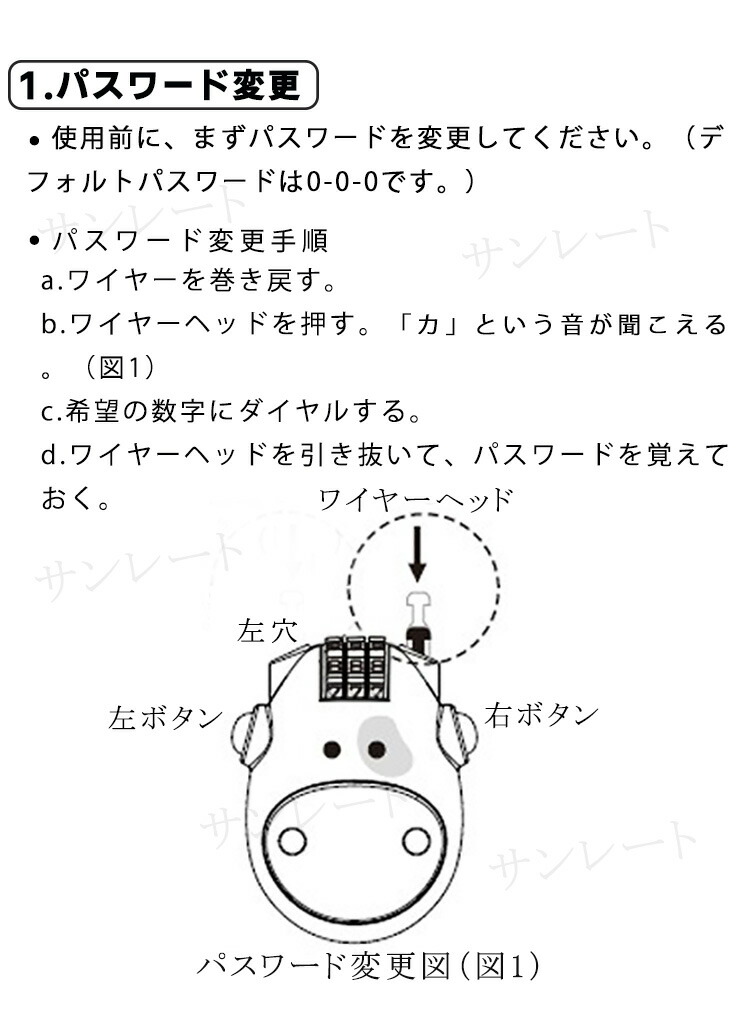 1.パスワード変更
• 使用前に、まずパスワードを変更してください。（デ
フォルトパスワードは0-0-0です。）
• パスワード変更手順
a.ワイヤーを巻き戻す。
b.ワイヤーヘッドを押す。「カ」という音が聞こえる
。（図1）
c.希望の数字にダイヤルする。
d.ワイヤーヘッドを引き抜いて、パスワードを覚えて
おく。
ワイヤーヘッド
左穴
左ボタン
右ボタン
パスワード変更図（図1）
サンレート
サンレート
サンレート
サンレート
サンレート